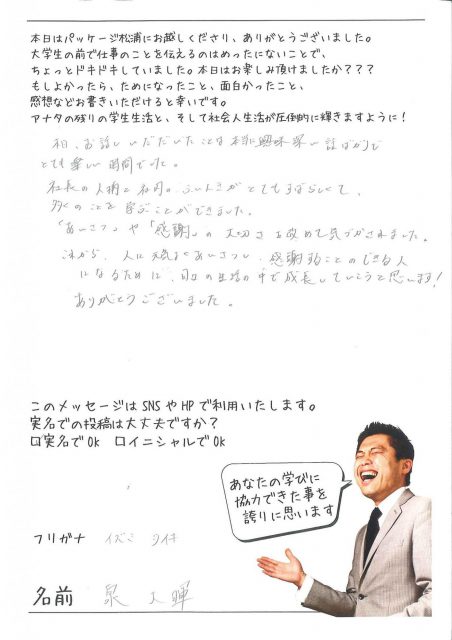 本日はパッケージ松浦にお越しくださり、ありがとうございました。
大学生の前で仕事のことを伝えるのはめったにないことで、
ちょっとドキドキしていました。本日はお楽しみ頂けましたか？？？
もしよかったら、ためになったこと、面白かったこと、
感想などお書きいただけると幸いです。
アナタの残りの学生生活と、そして社会人生活が圧倒的に輝きますように！
本日、お話しいただいたことは本当に興味深い話ばかりで
とても楽しい時間でした。
社長の人柄と社内のふんいきがとてもすばらしくて、
多くのことを学ぶことができました。
「あいさつ」や「感謝」の大切さを改めて気づかされました。
これから、人に元気よくあいさつし、感謝することのできる人
になるために、日々の生活の中で成長していこうと思います！
ありがとうございました。
このメッセージはSNSやHPで利用いたします。
実名での投稿は大丈夫ですか？
口実名でOK 口イニシャルでOK
あなたの学びに
協力できた事を
誇りに思います
フリガナ イズミ タイキ
名前 泉 大暉